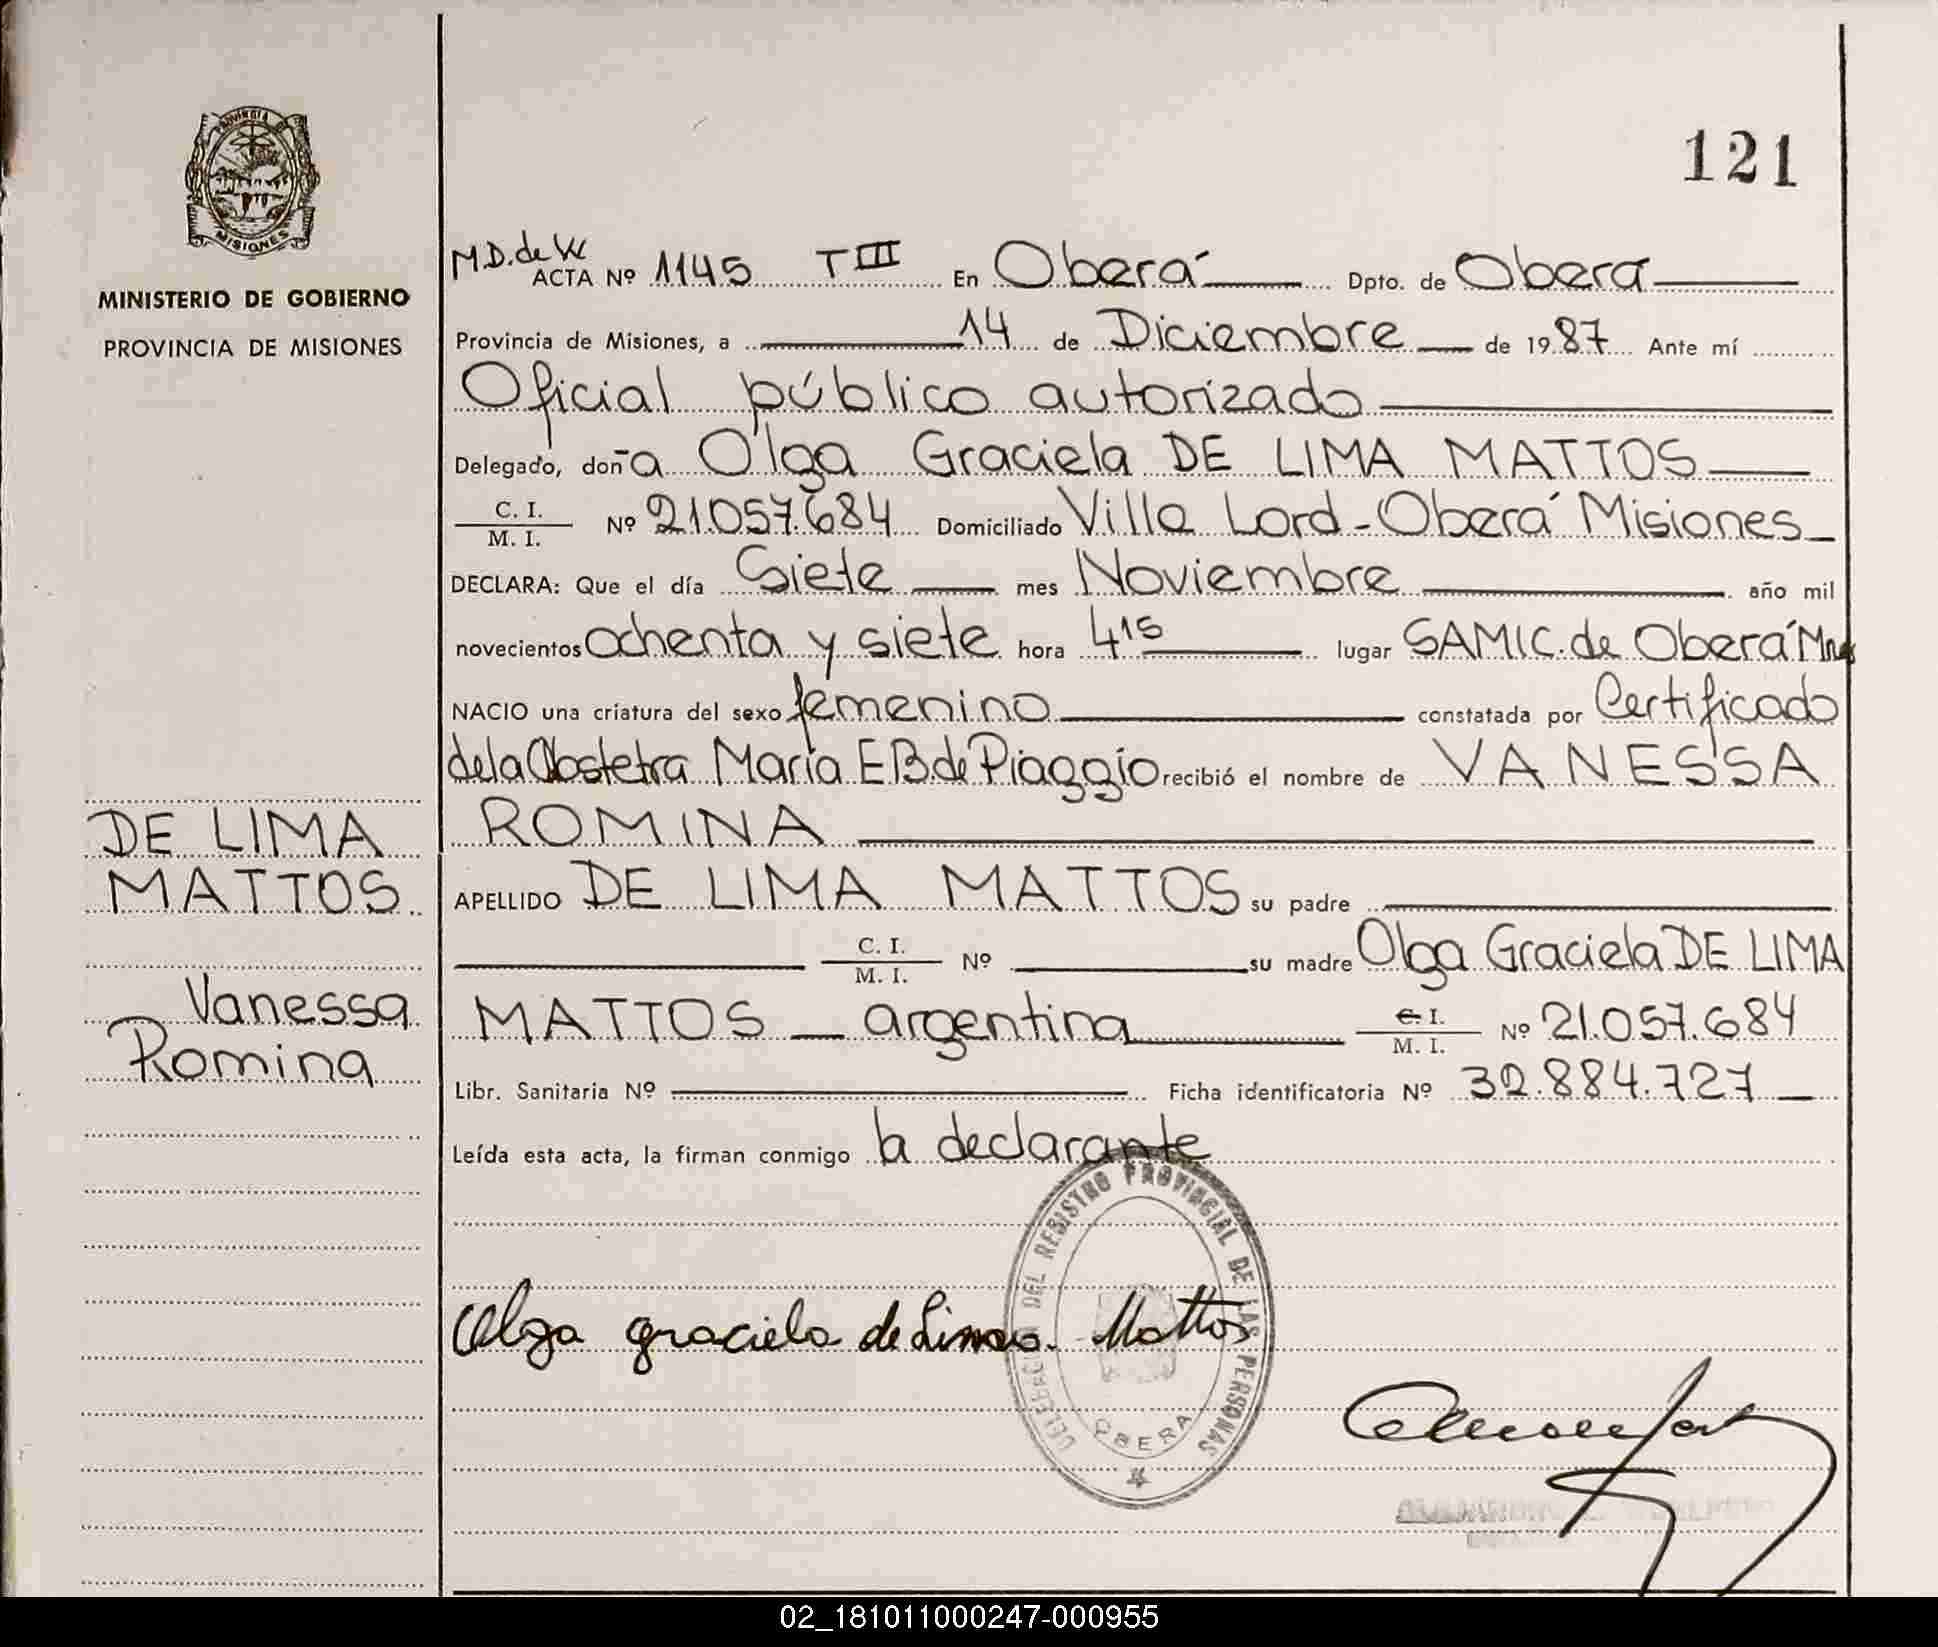 121
PROVINCIA DE
MISIONES
MINISTERIO DE GOBIERNO
PROVINCIA DE MISIONES
DE LIMA
MATTOS
Vanessa
Romina
M D. de W
ACTA Nº 1145 T III En Oberá Dpto. de Oberá
Provincia de Misiones, a 14 de Diciembre de 1987 Ante mí
Oficial público autorizado
Delegado, doña Olga Graciela DE LIMA MATTOS
C. I.
M. I. Nº 21.057.684 Domiciliado Villa Lord - Oberá Misiones
DECLARA: Que el día Siete mes Noviembre año mil
novecientos ochenta y siete hora 4 15 lugar SAMIC. de Oberá Mnes
NACIO una criatura del sexo femenino constatada por Certificado
de la Obstetra María E B. de Piaggio recibió el nombre de VANESSA
ROMINA
APELLIDO DE LIMA MATTOS su padre
C. I.
M. I. Nº su madre Olga Graciela DE LIMA
MATTOS argentina C. I.
M. I. Nº 21.057.684
Libr. Sanitaria Nº Ficha identificatoria Nº 32.884.727
Leída esta acta, la firman conmigo la declarante
DELEGACION DEL REGISTRO PROVINCIAL DE LAS PERSONAS
OBERA
Olga graciela de Lima Mattos
02_181011000247-000955